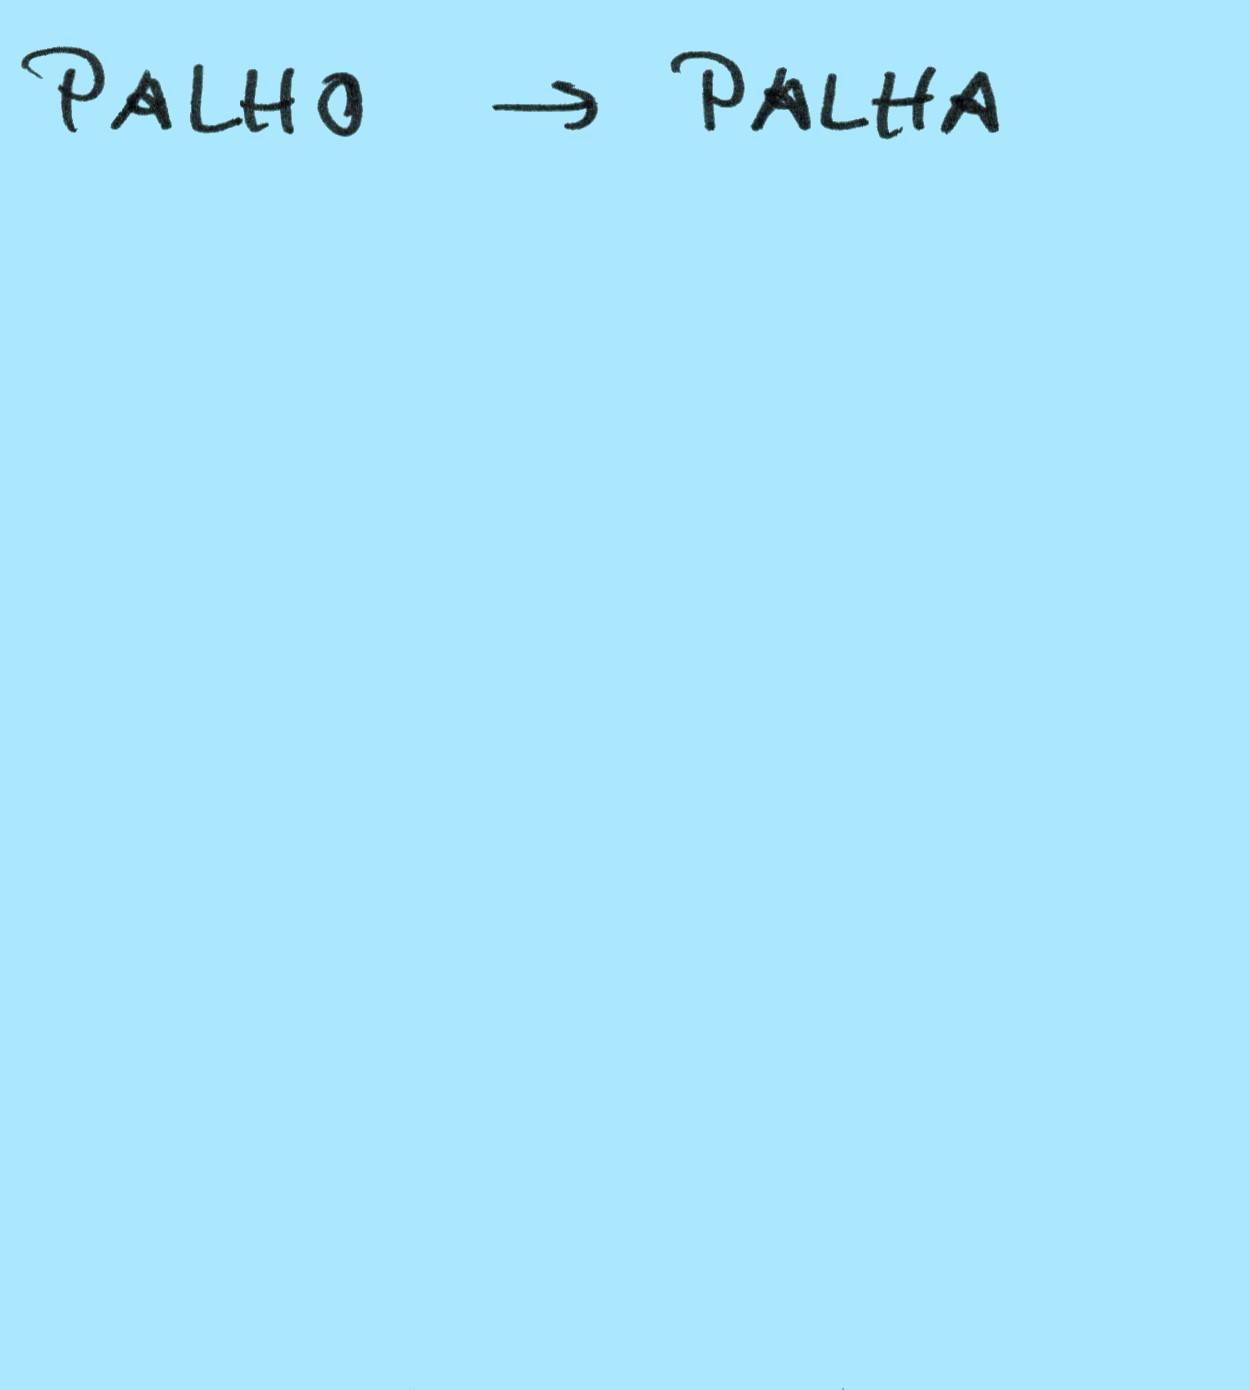 PALHO → PALHA